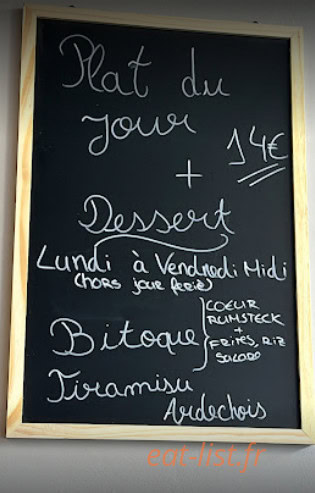 Plat du
jour
14€
+
Dessert
Lundi à Vendredi Midi
(hors jour ferié)
Bitoque
COEUR
RUMSTECK
+
FRITES, RIZ
SALADE
Tiramisu
Ardechois
eat-list.fr